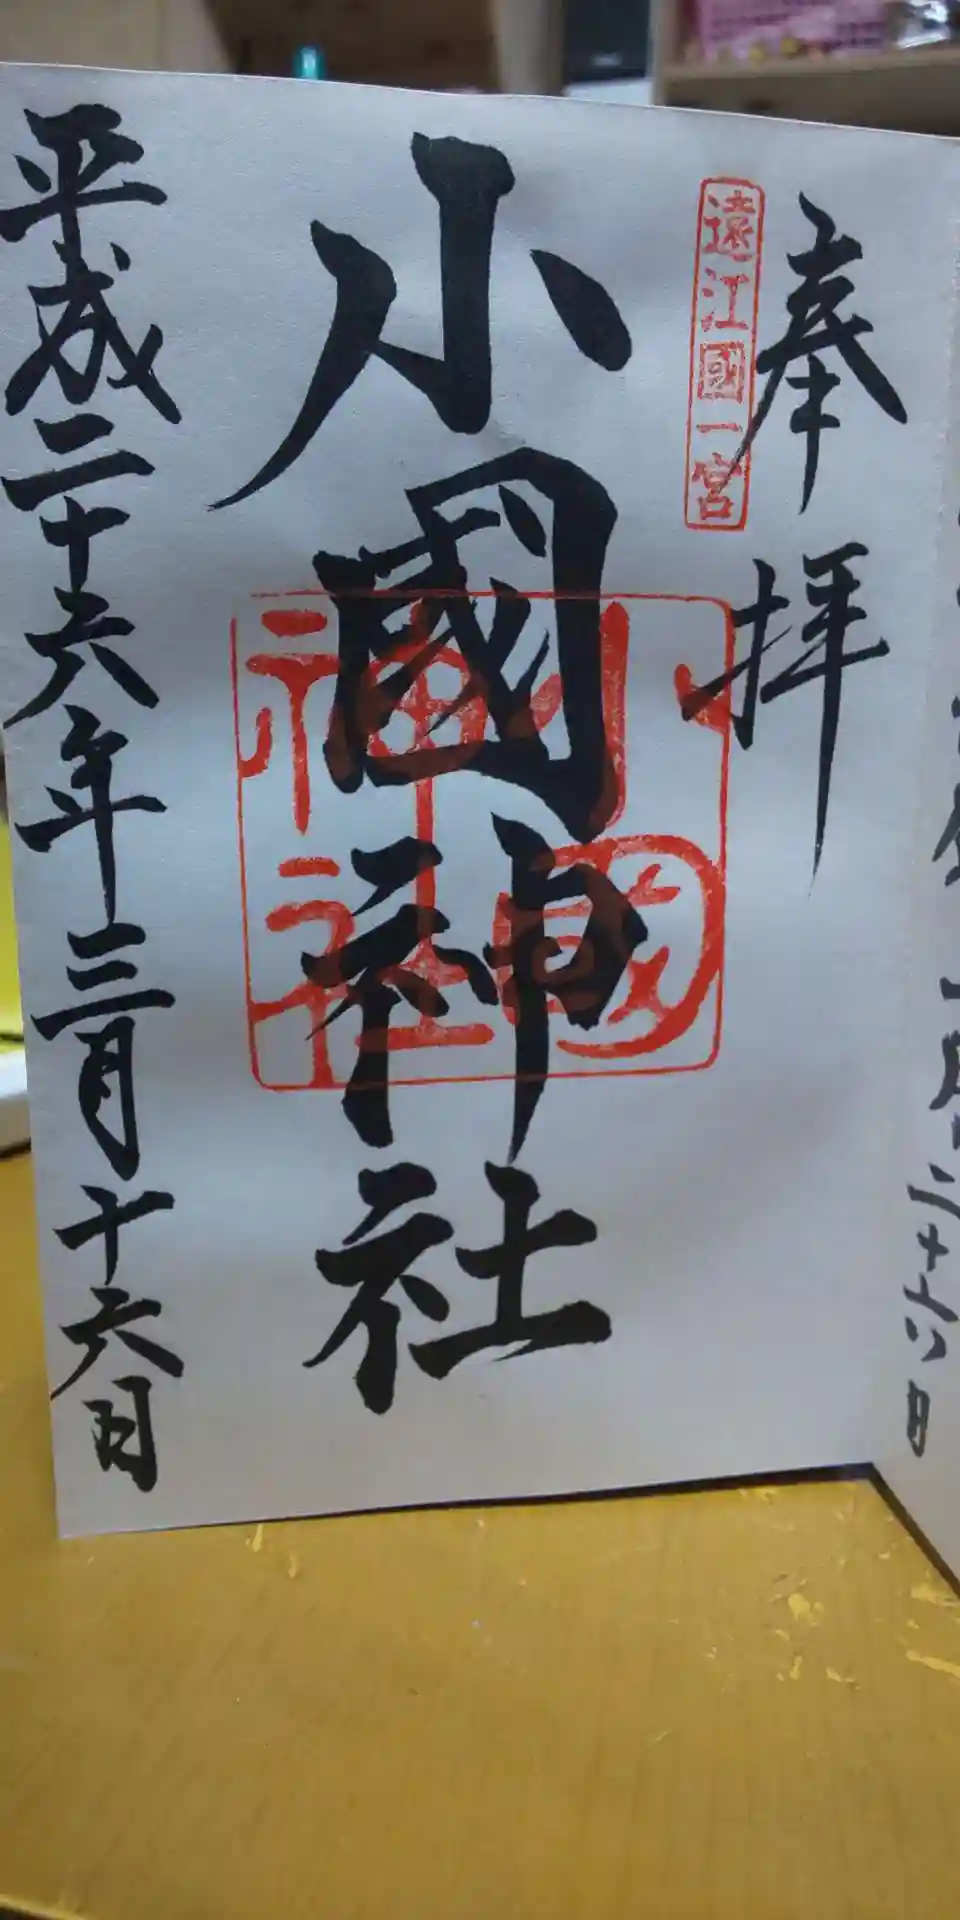 奉拝
遠江國一宮
小國神社
小國
神社
平成二十六年三月十六日
二十六日